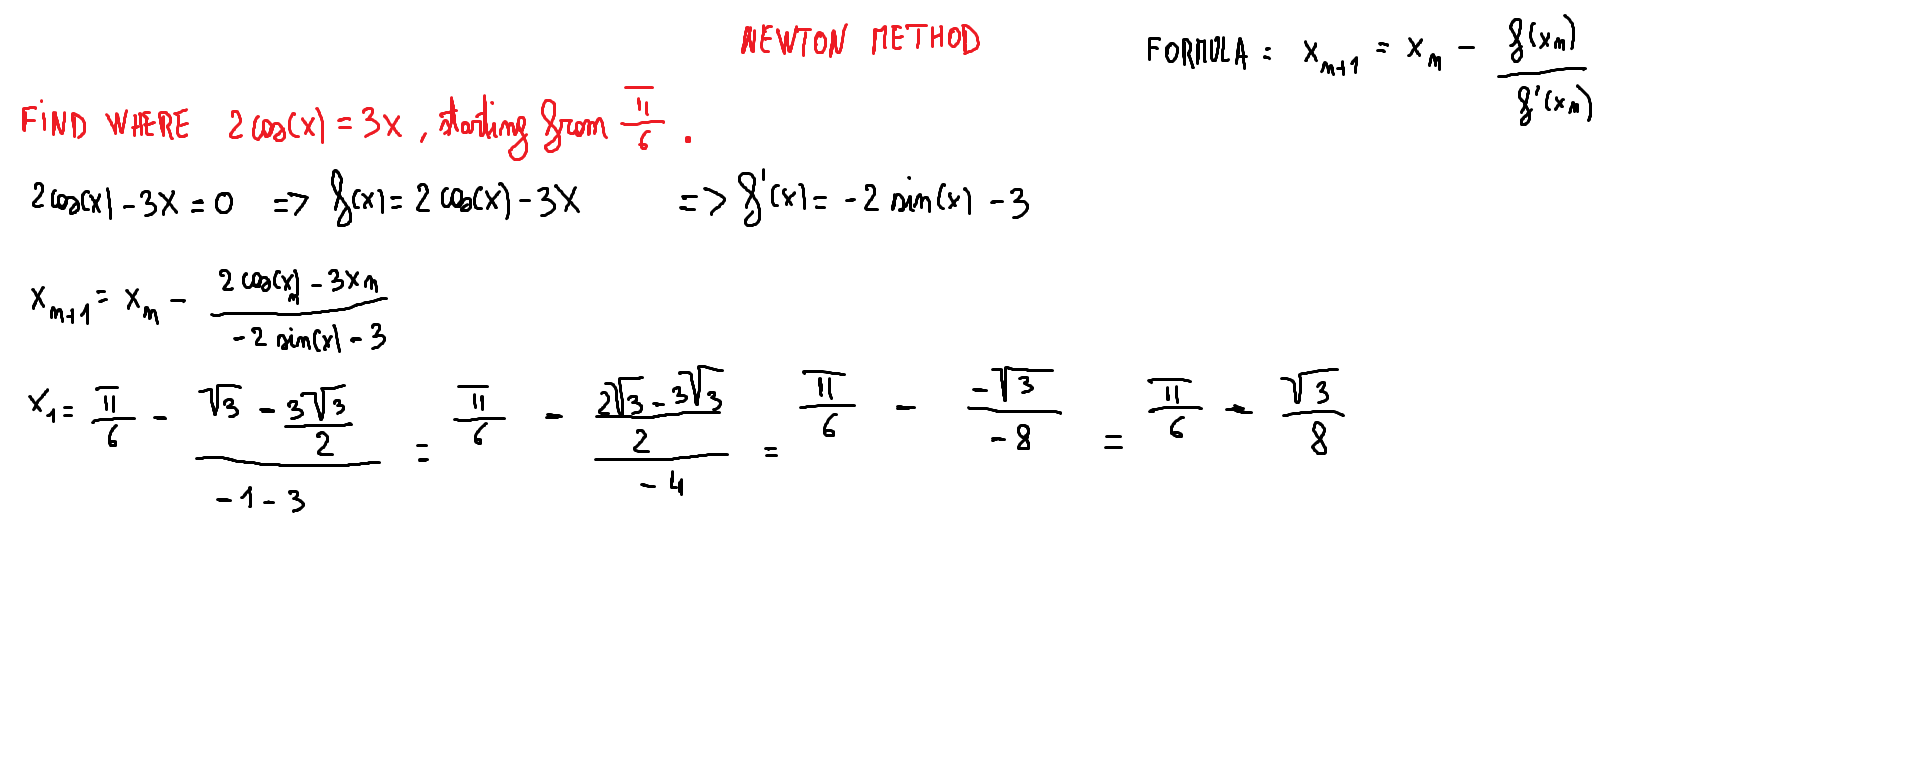 NEWTON METHOD
FORMULA: x_{n+1} = x_n - f(x_n)/f'(x_n)
FIND WHERE 2cos(x) = 3x, starting from π/6.
2cos(x) - 3x = 0 => f(x) = 2cos(x) - 3x => f'(x) = -2 sin(x) - 3
x_{n+1} = x_n - (2cos(x_n) - 3x_n)/(-2 sin(x) - 3)
x_1 = π/6 - (√3 - 3√3/2)/(-1-3) = π/6 - ((2√3 - 3√3)/2)/(-4) = π/6 - (-√3)/(-8) = π/6 - √3/8